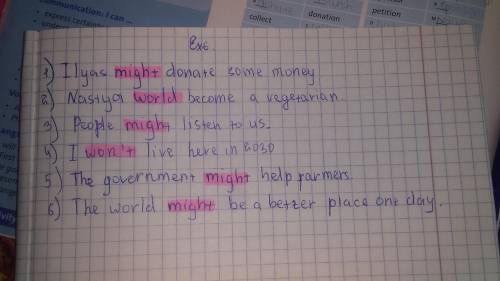 communication: I can ...
• express certain
collect
donation
petition
Ex6.
1) Ilyas might donate some money
2) Nastya world become a vegetarian.
3) People might listen to us.
4) I won't live here in 2030
5) The government might help farmers.
6) The world might be a better place one day.